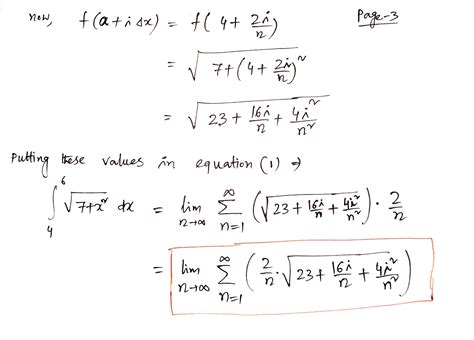 now, f(a+iΔx) = f(4+ 2i/n) Page-3
= √(7+(4+ 2i/n)²)
= √(23 + 16i/n + 4i²/n²)
Putting these values in equation (1) ⇒
∫₄⁶ √(7+x²) dx = lim n→∞ ∑ n=1 ∞ (√(23 + 16i/n + 4i²/n²)) · 2/n
= lim n→∞ ∑ n=1 ∞ (2/n · √(23 + 16i/n + 4i²/n²))